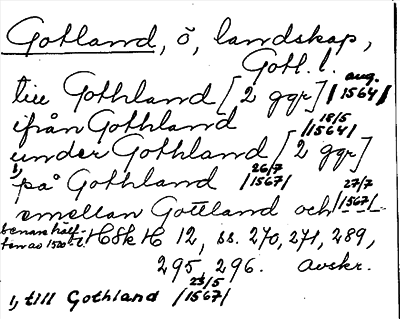 Gotland, ö, landskap,
Gotl. l.
till Gothland [2 ggr] / aug. 1564 /
ifrån Gothland / 18/5 1564 /
under Gothland [2 ggr]
1) på Gothland / 26/7 1567 /
emellan Gottland och / 27/7 1567 /
HSk H 12, ss. 270, 271, 289,
295, 296. avskr.
1) till Gothland / 23/5 1567 /